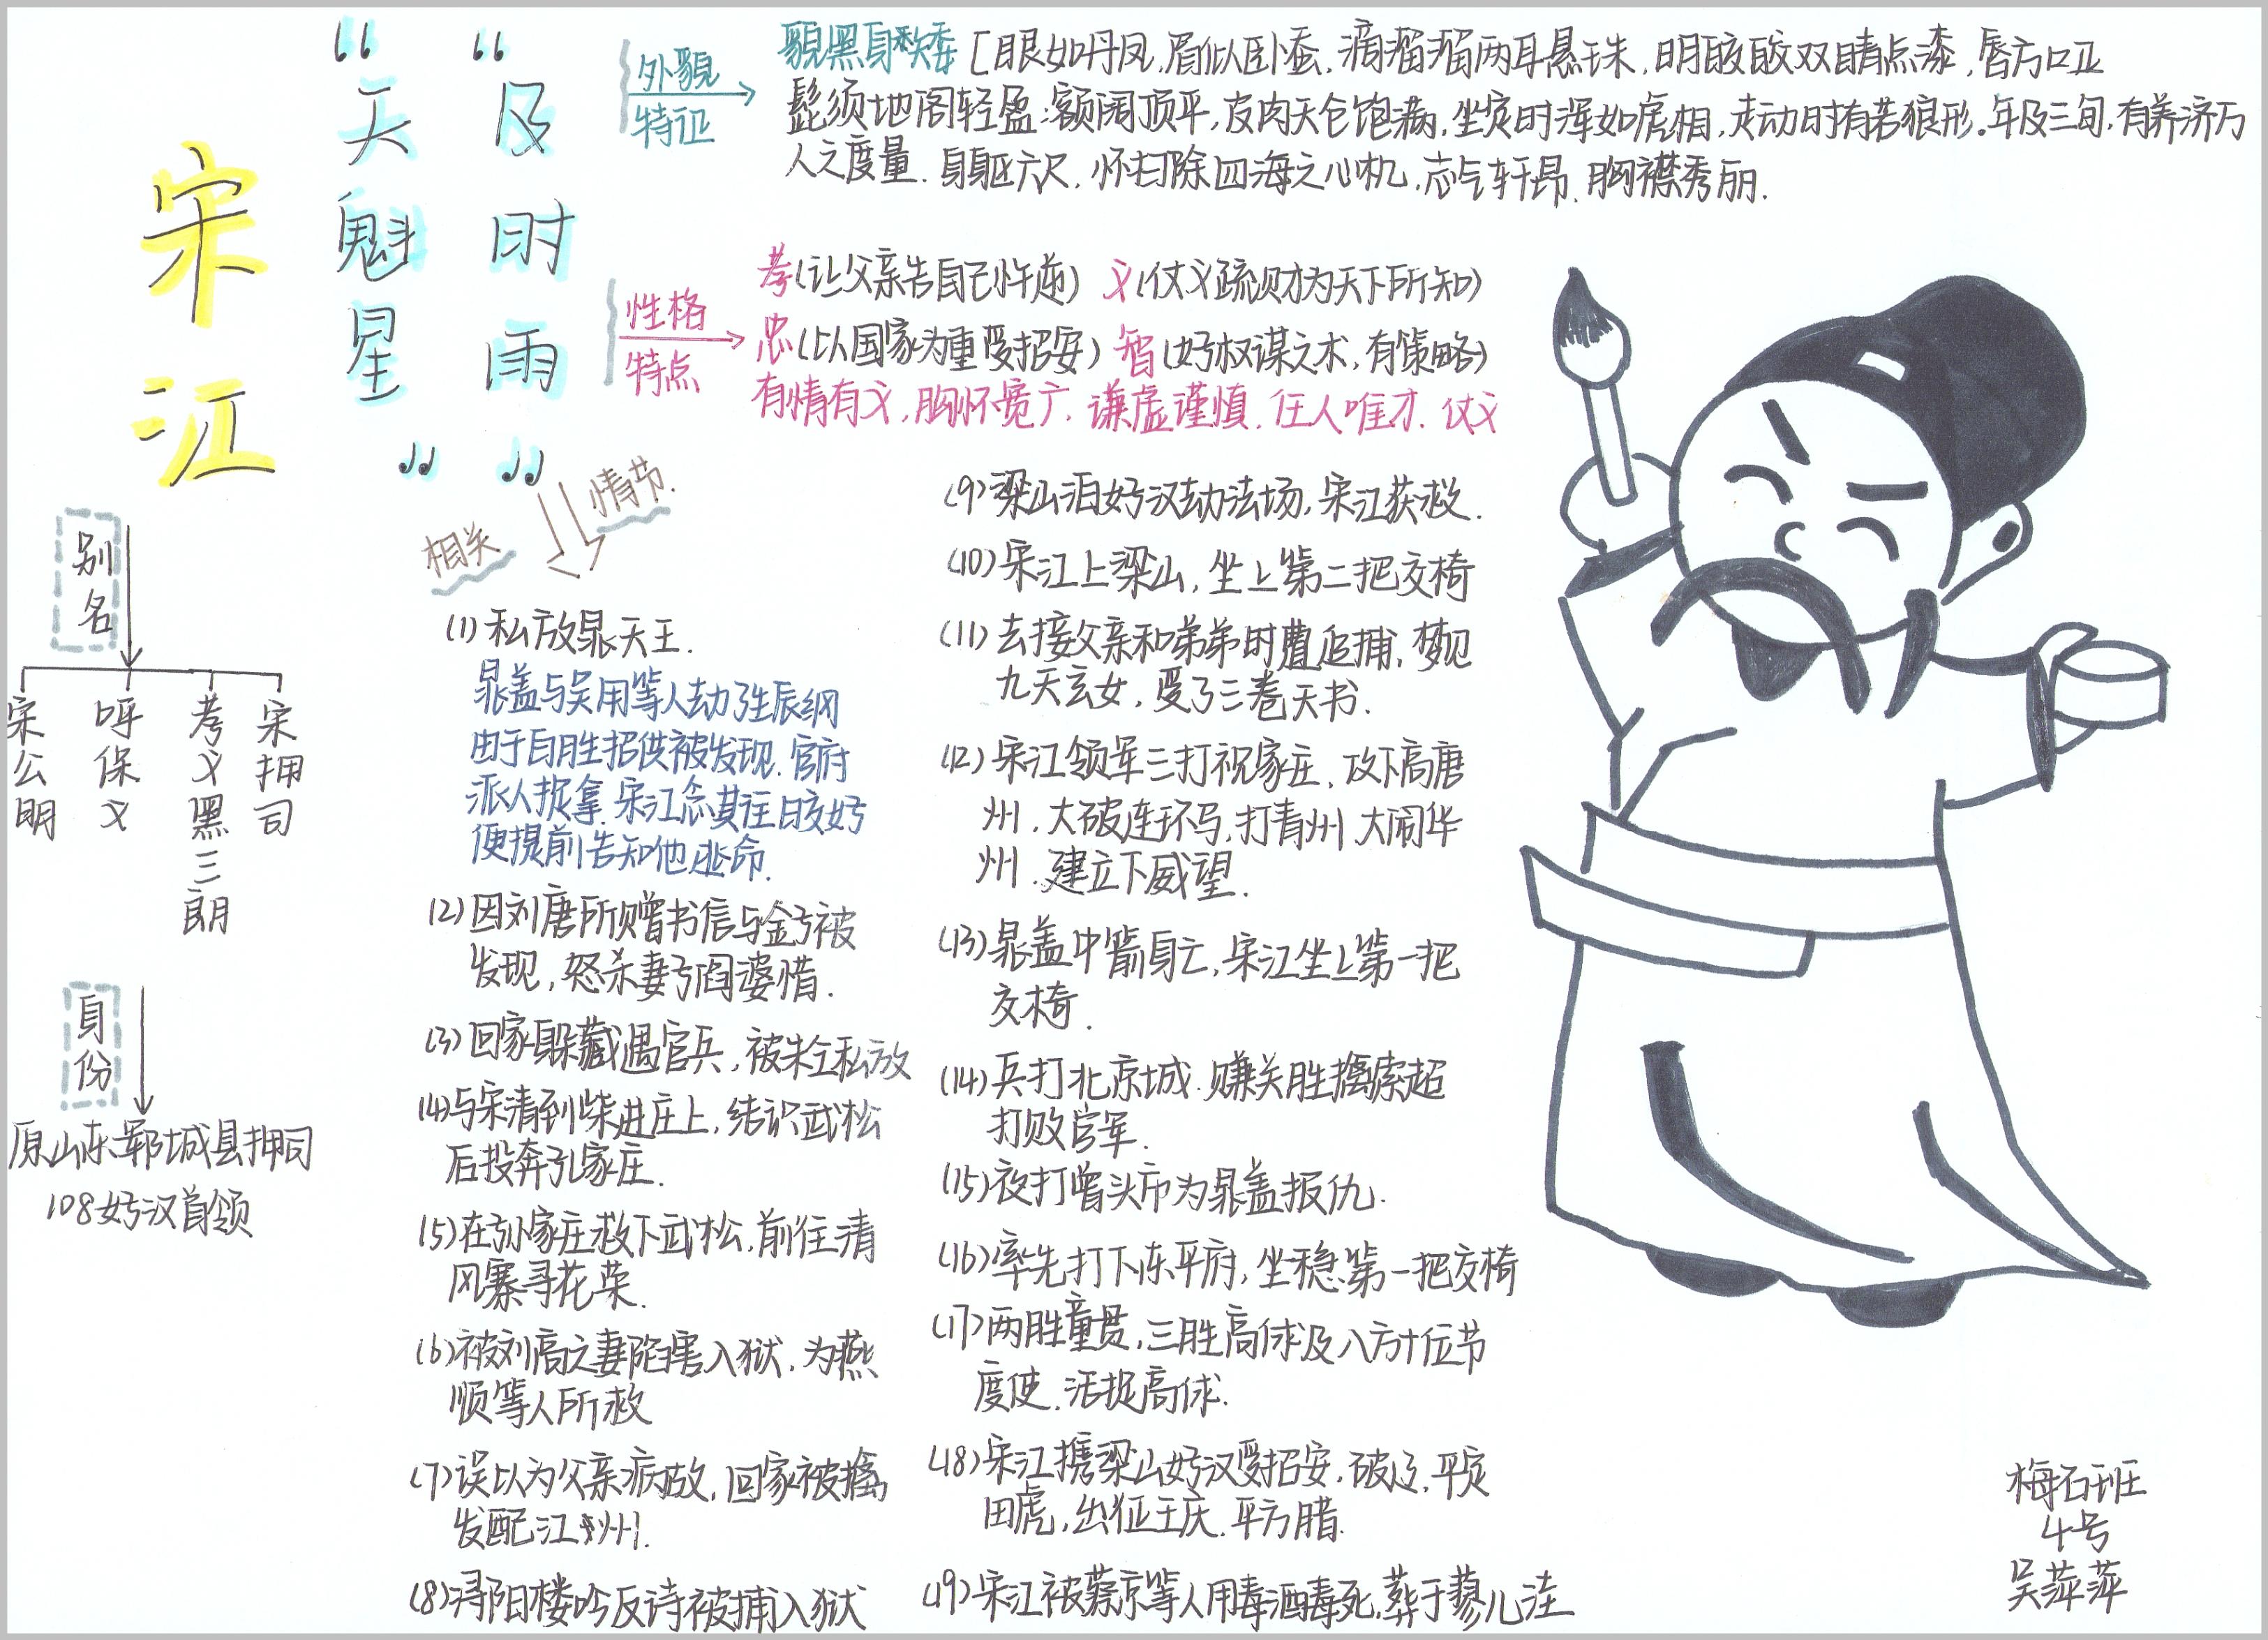 宋江
“天魁星”
“及时雨”
外貌
特征
貌黑身矮 [眼如丹凤,眉似卧蚕,滴溜溜两耳悬珠,明皎皎双睛点漆,唇方口正
髭须地阁轻盈;额阔顶平,皮肉天仓饱满,坐定时浑如虎相,走动时有若狼形。年及三旬,有养济万
人之度量.身躯六尺,怀扫除四海之心机,志气轩昂.胸襟秀丽.
性格
特点
孝(让父亲告自己忤逆) 义(仗义疏财为天下所知)
忠(以国家为重受招安) 智(好权谋之术,有策略)
有情有义,胸怀宽广.谦虚谨慎.任人唯才.仗义
别名
宋公明
呼保义
孝义黑三郎
宋押司
身份
原山东郓城县押司
108好汉首领
相关
情节.
(1)私放晁天王.
晁盖与吴用等人劫了生辰纲
由于白胜招供被发现.官府
派人捉拿.宋江念其往日交好
便提前告知他逃命.
(2)因刘唐所赠书信与金子被
发现,怒杀妻子阎婆惜.
(3)回家躲藏遇官兵,被朱仝私放
(4)与宋清到柴进庄上,结识武松
后投奔孔家庄.
(5)在孙家庄救下武松,前往清
风寨寻花荣.
(6)被刘高之妻陷害入狱.为燕
顺等人所救
(7)误以为父亲病故,回家被擒
发配江州.
(8)浔阳楼吟反诗被捕入狱
(9)梁山泊好汉劫法场,宋江获救.
(10)宋江上梁山,坐上第二把交椅
(11)去接父亲和弟弟时遭追捕,梦见
九天玄女,受了三卷天书.
(12)宋江领军三打祝家庄,攻下高唐
州.大破连环马,打青州.大闹华
州.建立下威望.
(13)晁盖中箭身亡,宋江坐上第一把
交椅.
(14)兵打北京城.赚关胜擒索超
打败官军.
(15)夜打曾头市为晁盖报仇.
(16)率先打下东平府,坐稳第一把交椅
(17)两胜童贯,三胜高俅及八方十位节
度使.活捉高俅.
(18)宋江携梁山好汉受招安,破辽,平定
田虎,出征王庆.平方腊.
(19)宋江被蔡京等人用毒酒毒死,葬于蓼儿洼
梅石班
4号
吴萍萍